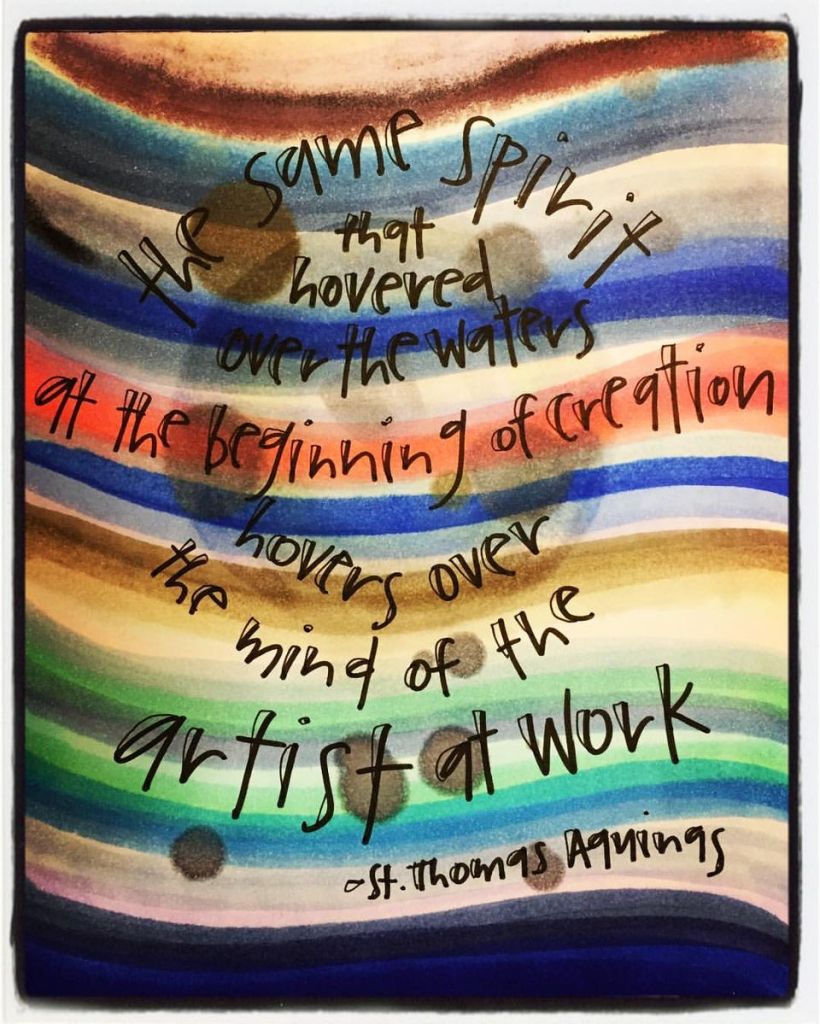 the same spirit
that
hovered
over the waters
at the beginning of creation
hovers over
the mind of the
artist at work
~St. Thomas Aquinas